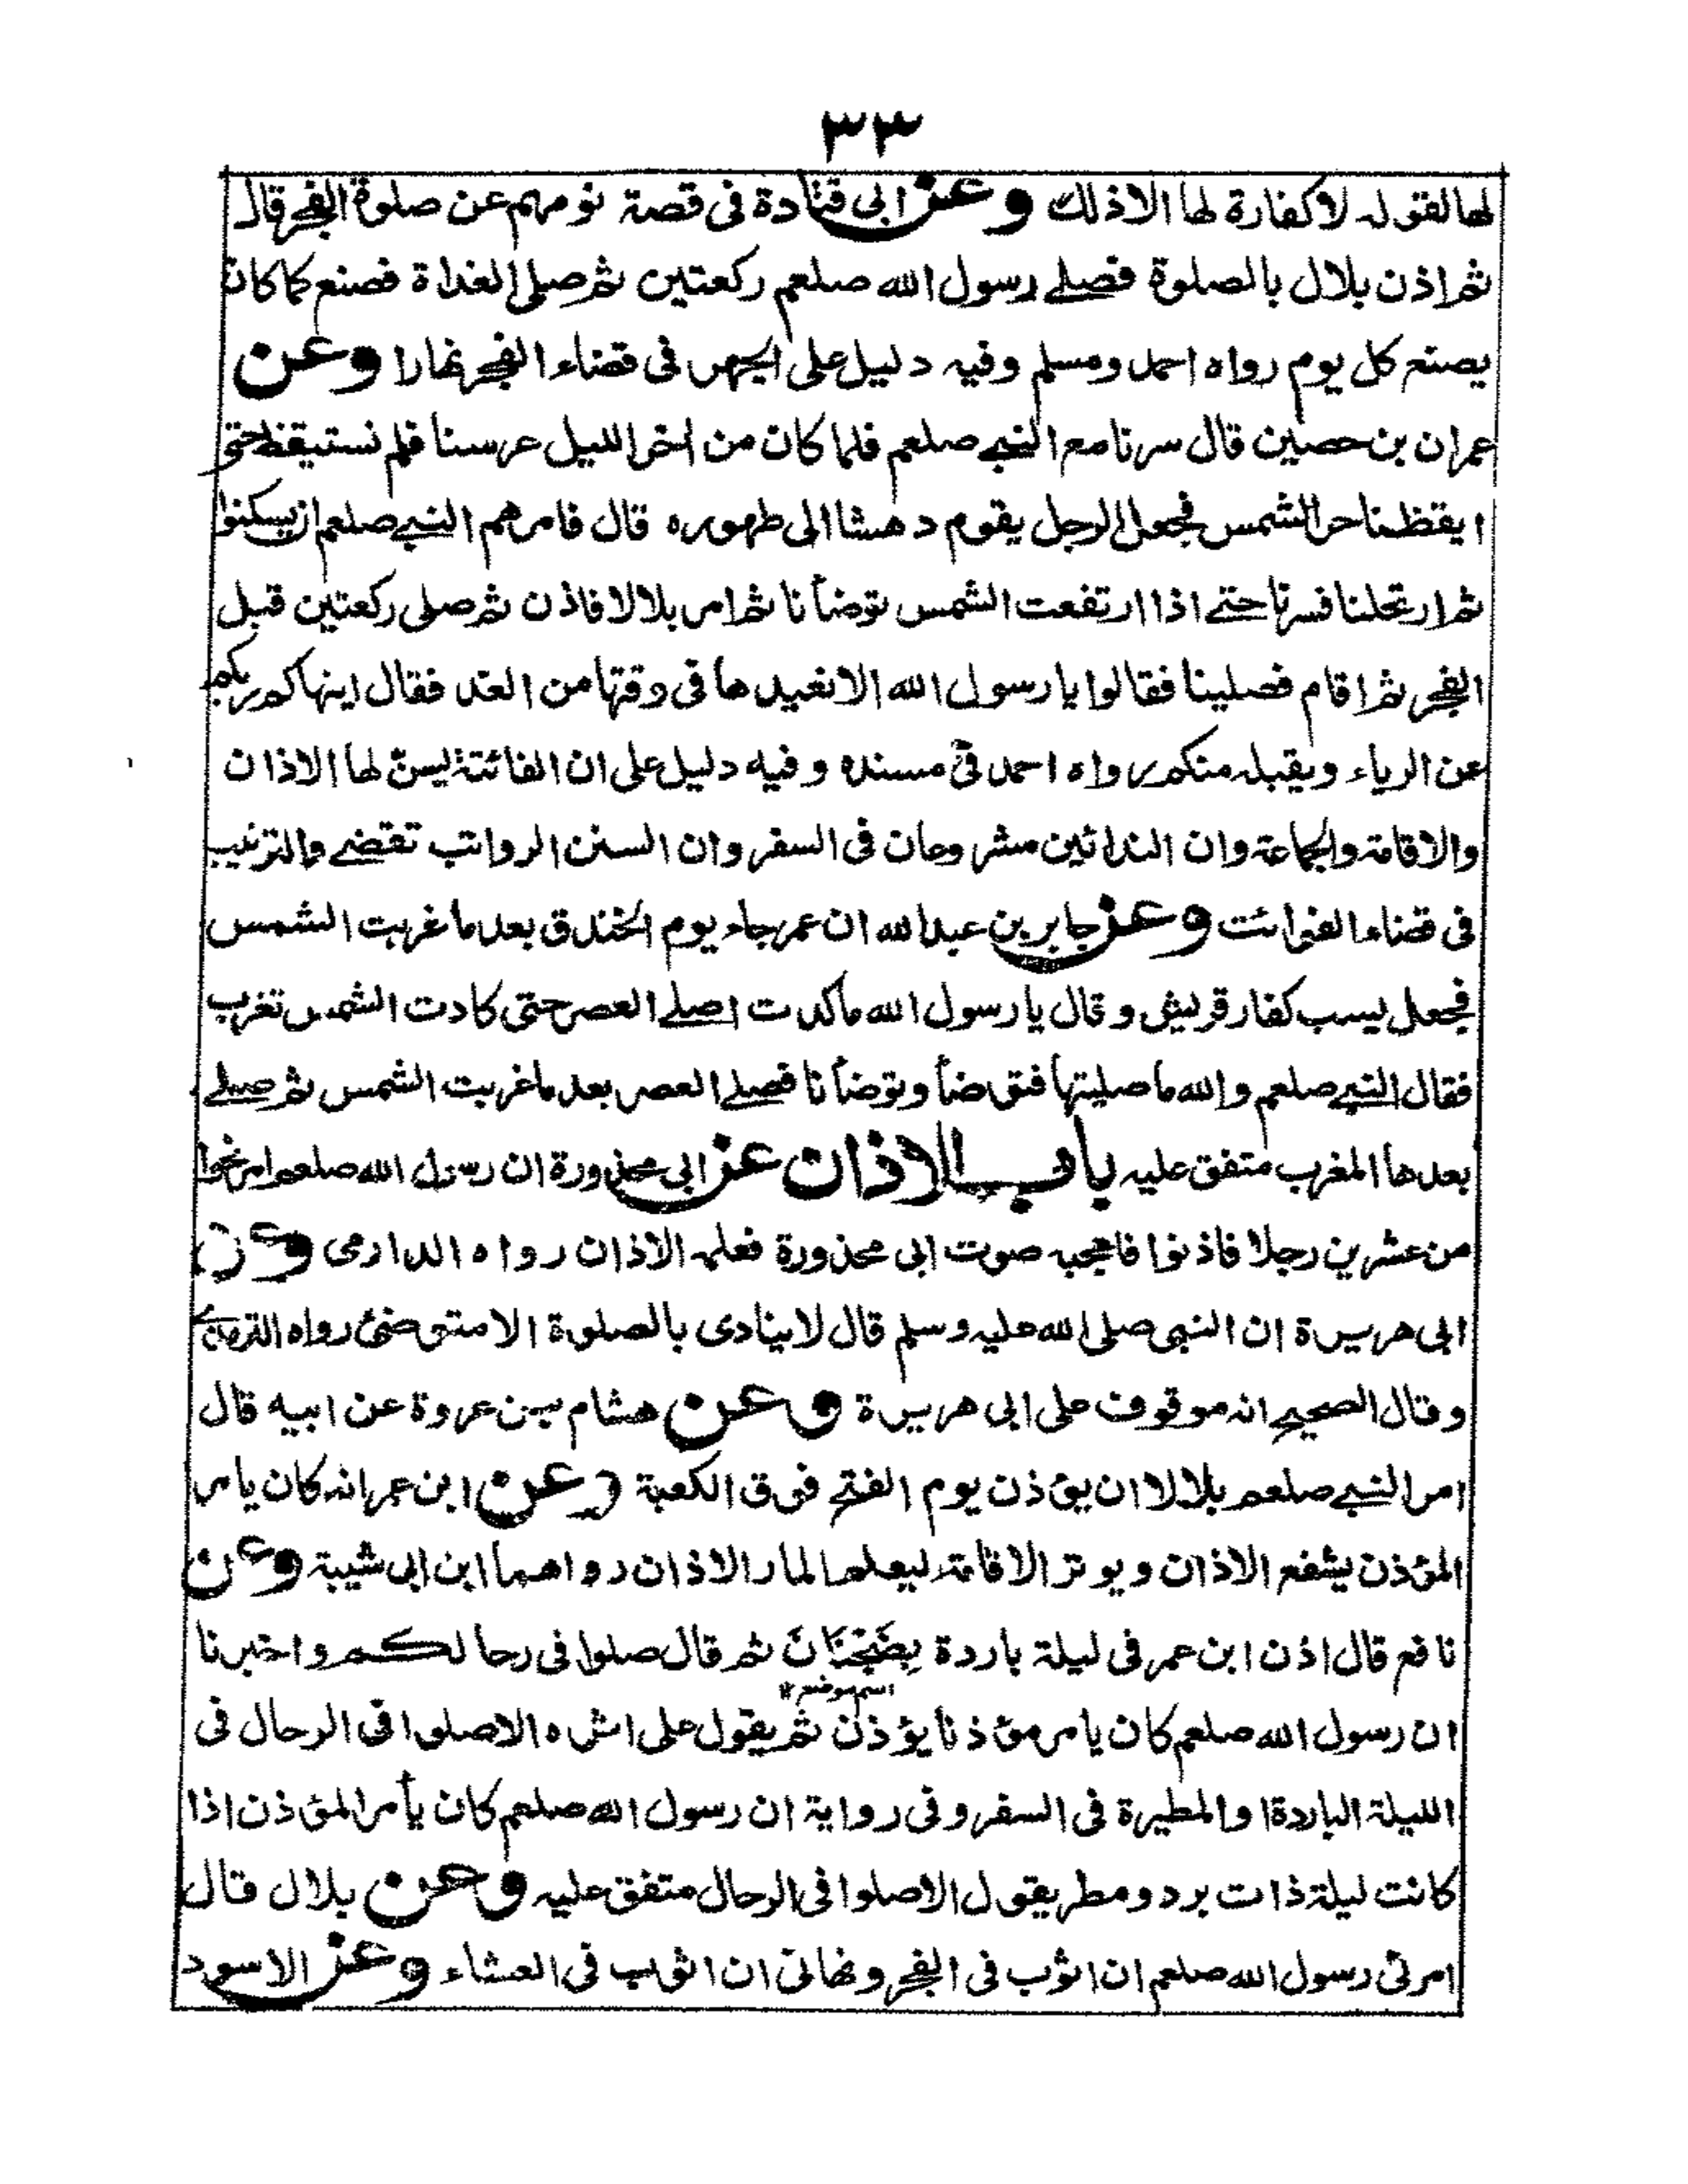 ٣٣
لها لقوله لا كفارة لها الا ذلك وعن ابى قتادة فى قصة نومهم عن صلوة الفجر قال
ثم اذن بلال بالصلوة فصلے رسول الله صلعم ركعتين ثم صلى الغداة فصنع كما كان
يصنع كل يوم رواه احمد ومسلم وفيه دليل على الجهر فى قضاء الفجر نهارا وعن
عمران بن حصين قال سرنا مع النبے صلعم فلما كان من اخر الليل عرسنا فلم نستيقظ حتى
ايقظنا حر الشمس فجعل الرجل يقوم دهشا الى طهوره قال فامرهم النبے صلعم ان يسكنوا
ثم ارتحلنا فسرنا حتے اذا ارتفعت الشمس توضأنا ثم امر بلالا فاذن ثم صلى ركعتين قبل
الفجر ثم اقام فصلينا فقالوا يا رسول الله الا نعيدها فى وقتها من الغد فقال اينهاكم ربكم
عن الرباء ويقبله منكم رواه احمد فى مسنده وفيه دليل على ان الفائتة يسن لها الاذان
والاقامة والجماعة وان الندائين مشروعان فى السفر وان السنن الرواتب تقضے والترتيب
فى قضاء الفوائت وعن جابر بن عبد الله ان عمر جاء يوم الخندق بعد ما غربت الشمس
فجعل يسب كفار قريش وقال يا رسول الله ما كدت اصلے العصر حتى كادت الشمس تغرب
فقال النبے صلعم والله ما صليتها فتوضأ وتوضأنا فصلے العصر بعد ما غربت الشمس ثم صلے
بعدها المغرب متفق عليه باب الاذان عن ابى محذورة ان رسول الله صلعم امر نحوا
من عشرين رجلا فاذنوا فاعجبه صوت ابى محذورة فعلمه الاذان رواه الدارمى وعن
ابى هريرة ان النبى صلى الله عليه وسلم قال لا ينادى بالصلوة الا متوضئ رواه الترمذے
وقال الصحيح انه موقوف على ابى هريرة وعن هشام بن عروة عن ابيه قال
امر النبے صلعم بلالا ان يؤذن يوم الفتح فوق الكعبة وعن ابن عمر انه كان يامر
المؤذن يشفع الاذان ويوتر الاقامة ليعلم المار الاذان رواهما ابن ابى شيبة وعن
نافع قال اذن ابن عمر فى ليلة باردة بِضَجْنَانَ ثم قال صلوا فى رحالكم واخبرنا
اسم موضع
ان رسول الله صلعم كان يامر مؤذنا يؤذن ثم يقول على اثره الا صلوا فى الرحال فى
الليلة الباردة او المطيرة فى السفر وفى رواية ان رسول الله صلعم كان يأمر المؤذن اذا
كانت ليلة ذات برد ومطر يقول الا صلوا فى الرحال متفق عليه وعن بلال قال
امرنى رسول الله صلعم ان اثوب فى الفجر ونهانى ان اثوب فى العشاء وعن الاسود